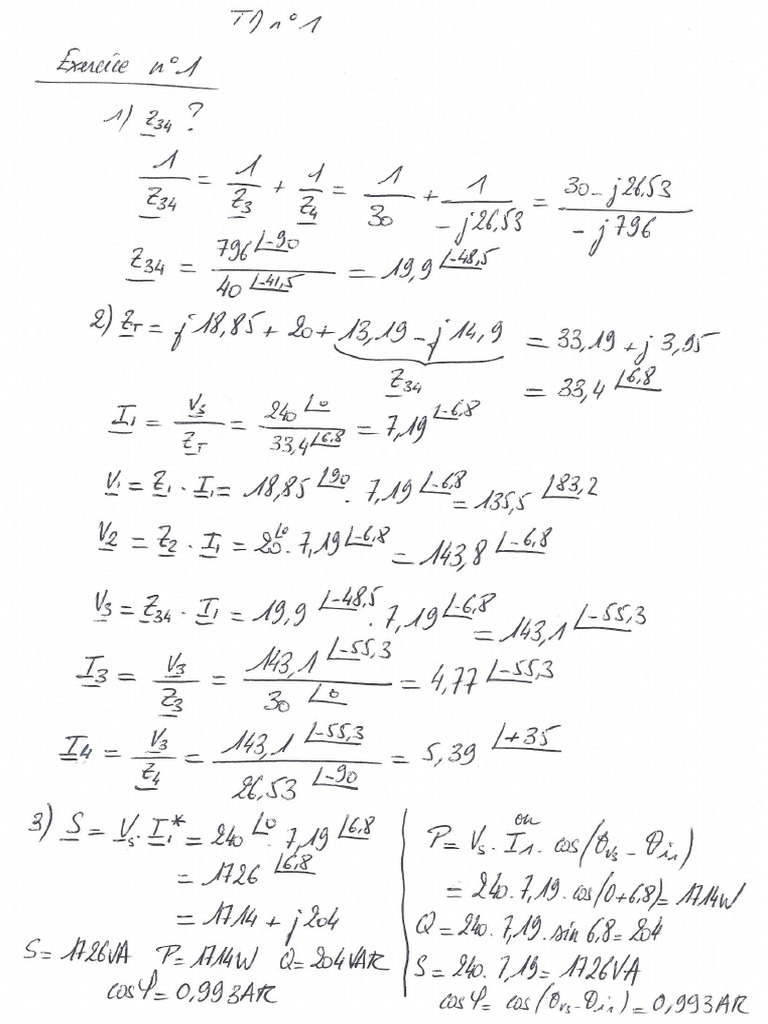 TD n°1
Exercice n°1
1) Z34 ?
1/Z34 = 1/Z3 + 1/Z4 = 1/30 + 1/-j26,53 = 30-j26,53/-j796
Z34 = 796∠-90/40∠-41,5 = 19,9∠-48,5
2) ZT = j18,85 + 20 + 13,19 - j14,9 = 33,19 + j3,95
Z34 = 33,4∠6,8
I1 = Vs/ZT = 240∠0/33,4∠6,8 = 7,19∠-6,8
V1 = Z1 . I1 = 18,85∠90 . 7,19∠-6,8 = 135,5∠83,2
V2 = Z2 . I1 = 20∠0 . 7,19∠-6,8 = 143,8∠-6,8
V3 = Z34 . I1 = 19,9∠-48,5 . 7,19∠-6,8 = 143,1∠-55,3
I3 = V3/Z3 = 143,1∠-55,3/30∠0 = 4,77∠-55,3
I4 = V3/Z4 = 143,1∠-55,3/26,53∠-90 = 5,39∠+35
3) S = Vs . I1* = 240∠0 . 7,19∠6,8
= 1726∠6,8
= 1714 + j204
S = 1726VA P = 1714W Q = 204VAR
cosφ = 0,993AR
ou
P = Vs . I1 . cos(θvs - θi1)
= 240 . 7,19 . cos(0+6,8) = 1714W
Q = 240 . 7,19 . sin 6,8 = 204
S = 240 . 7,19 = 1726VA
cosφ = cos(θvs - θi1) = 0,993AR